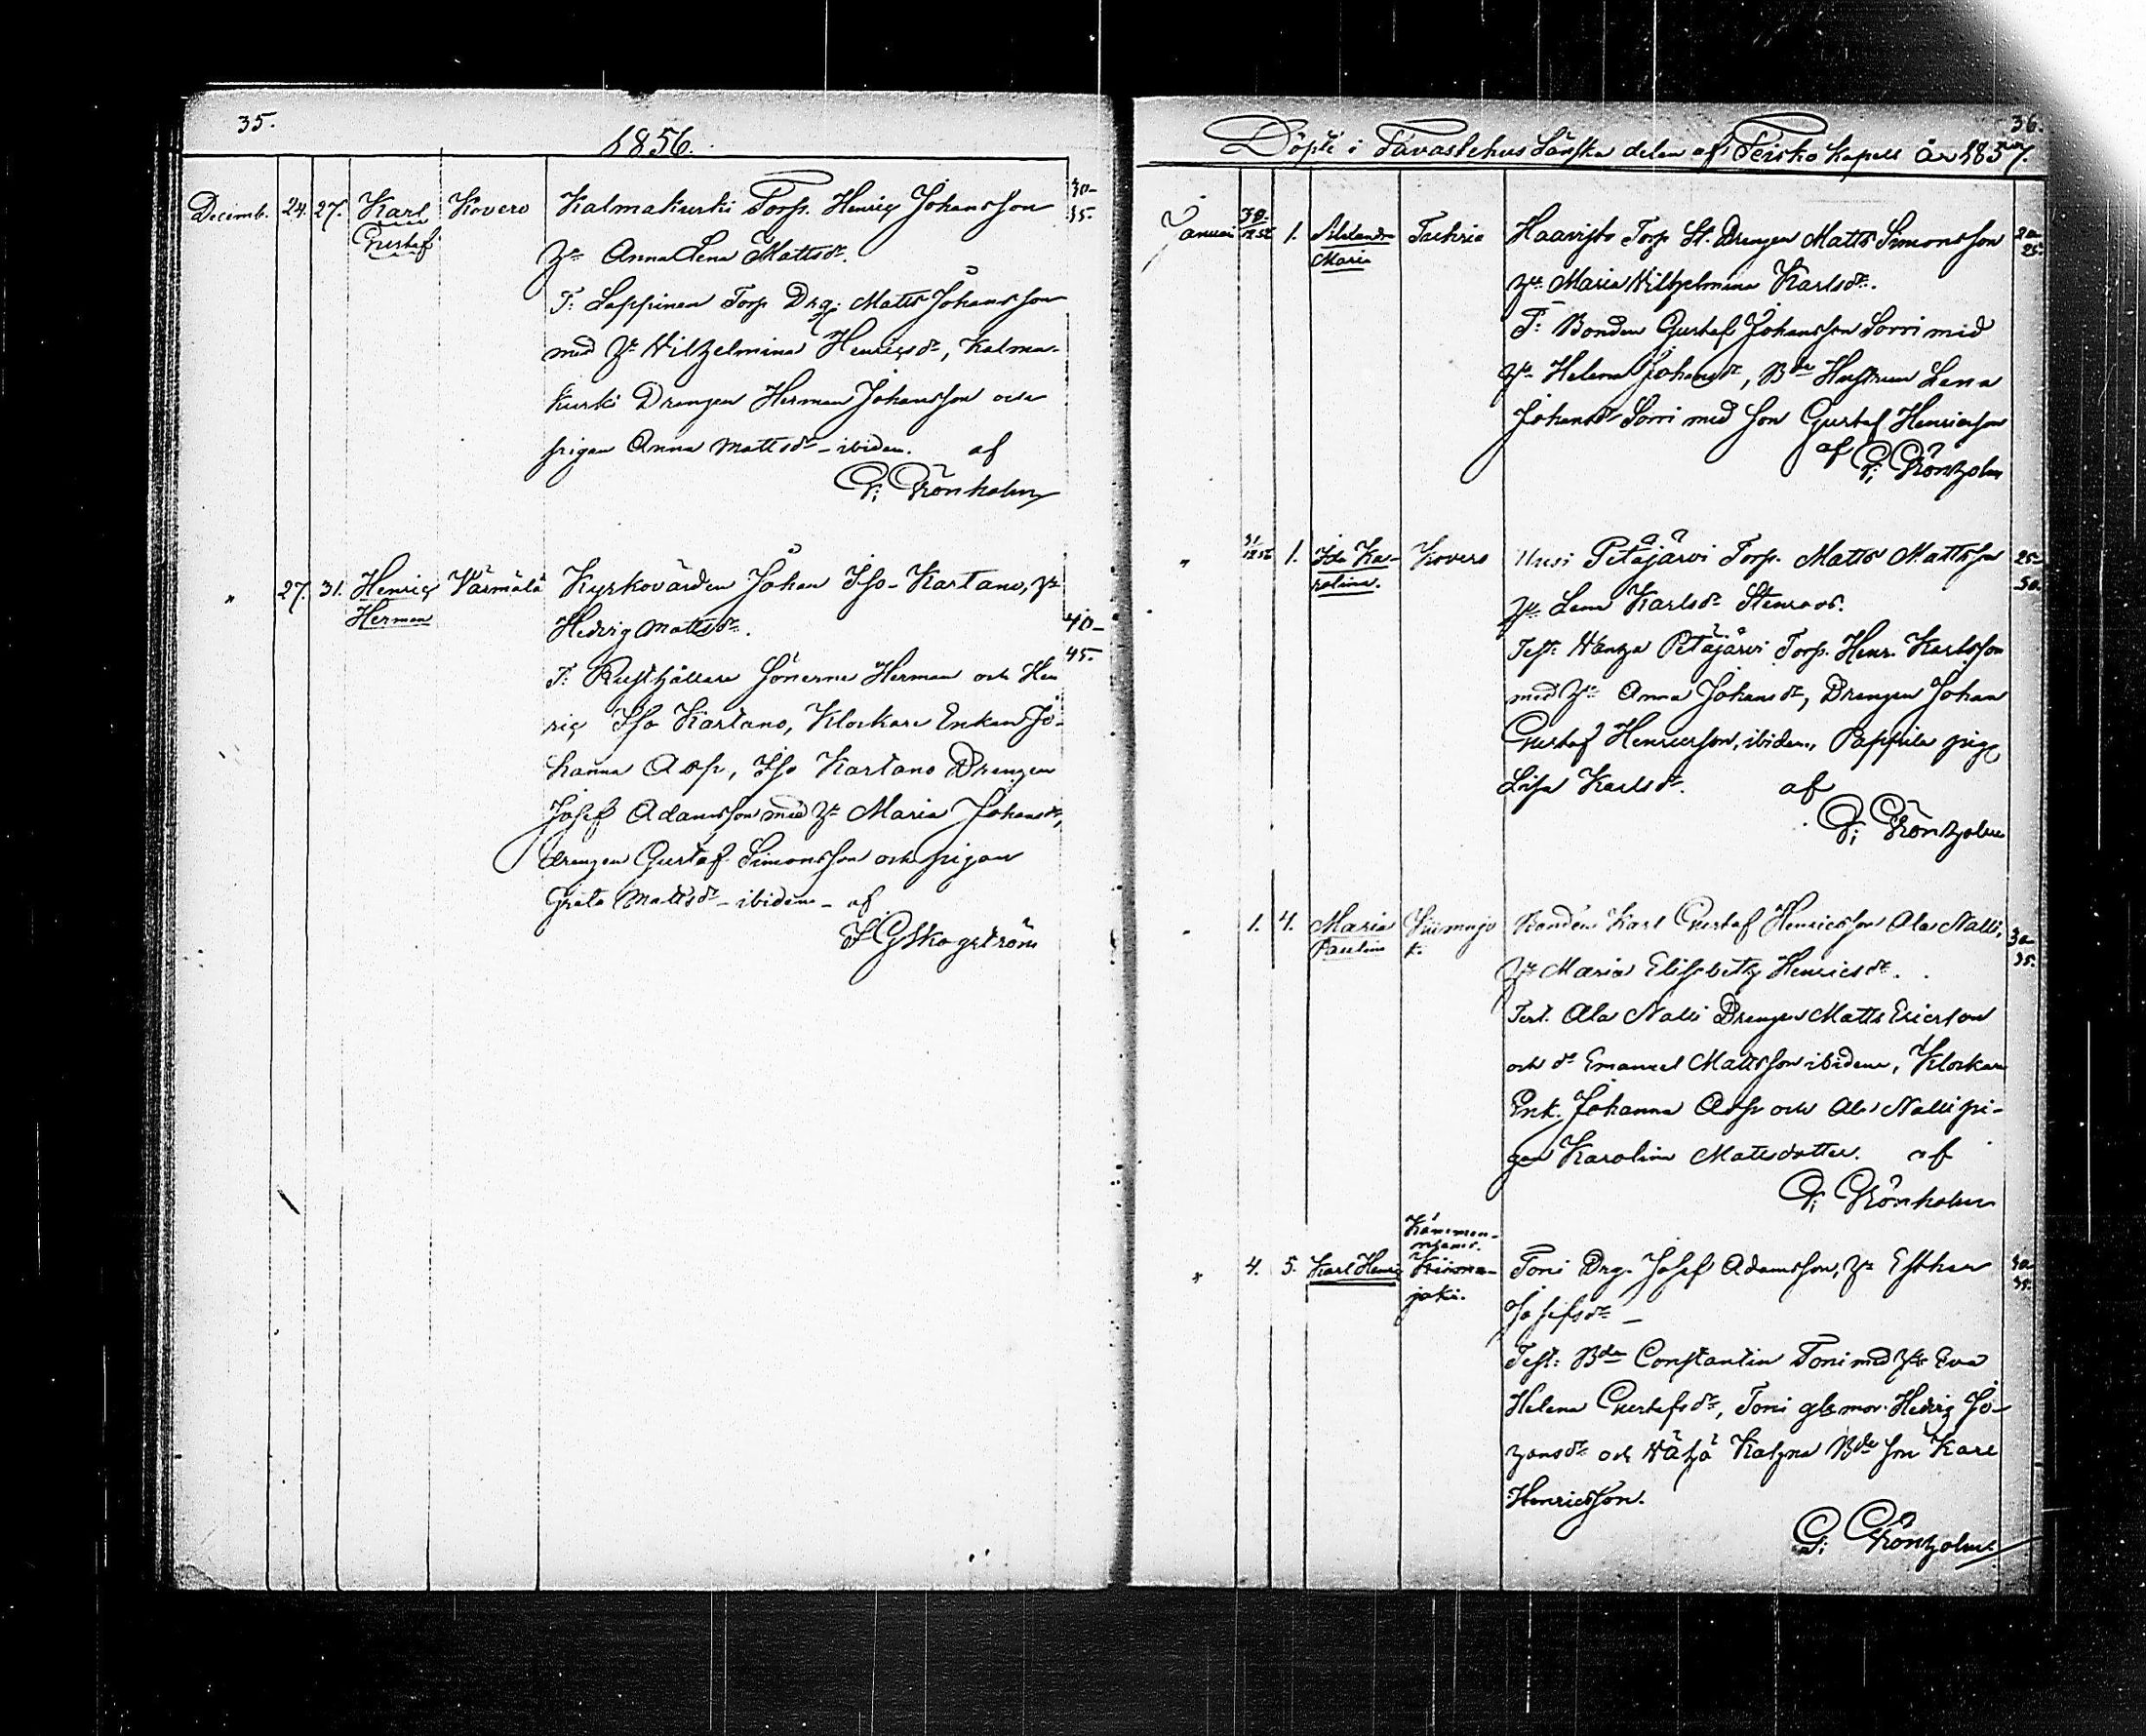 35.
1856.
Decemb. 24. 27. Karl Kovero Kalmakurki Torp. Henric Johansson 30-
Gustaf 35.
H. Anna Lena Mattsdr.
T: Lappinen Torp Drg. Matts Johansson
med H. Wilhelmina Henricsdr, Kalma-
kurki Drengen Herman Johansson och
pigan Anna Mattsdr - ibidem. af
G: Grönholm
" 27. 31. Henric Värmälä Kyrkovärden Johan Iso-Kartano, H.
Herman Hedvig Mattsdr. 40-
45.
T: Rusthållare Sönerne Herman och Hen
ric Iso Kartano, Klockare Enkan Jo-
hanna Asp, Iso Kartano Drengen
Josef Adamsson med H. Maria Johansdr,
drengen Gustaf Simonsson och pigan
Greta Mattsdr - ibidem - af
Skogström
36.
Döpte i Tavastehus Länska delen af Teisko Kapell år 1857.
Januari 30/12 56 1. Alexandra Maria Haavisto Torp St. Drengen Matts Simonsson 20-
25.
H. Maria Wilhelmina Karlsdr.
T: Bonden Gustaf Johansson Sorri med
H. Helena Johansdr, Bde Hustrun Lena
Johansdr Sorri med Son Gustaf Henricsson
af G: Grönholm
" 31/12 56 1. Ida Ka- Kovero Uusi Petäjärvi Torp. Matts Mattsson 25-
rolina. 30.
H. Lena Karlsdr Stenroos.
Test: Wanha Petäjärvi Torp. Henr. Karlsson
med H. Anna Johansdr, Drengen Johan
Gustaf Henricsson, ibidem, Pappila pig.
Lisa Karlsdr. af
G: Grönholm
" 1. 4. Maria Kiimajo Bonden Karl Gustaf Henricsson Ala Nalli, 30-
Paulina k. 35.
H. Maria Elisabeth Henricsdr.
Test. Ala Nalli Drengen Matts Ericsson
och dr Emanuel Mattsson ibidem, Klockare
Enk. Johanna Asp och Ala Nalli pi-
gan Karolina Mattsdotter. af
G: Grönholm
Kämmen-
niemi.
" 4. 5. Karl Henric Kiima- Toni Drg. Josef Adamsson, H. Esther 30-
joki. 35.
Josefsdr -
Test: Bde Constantin Toni med H. Eva
Helena Gustafsdr, Toni gle mor. Hedvig Jo-
hansdr och Wähä Kahna Bde Son Karl
Henricsson.
G: Grönholm